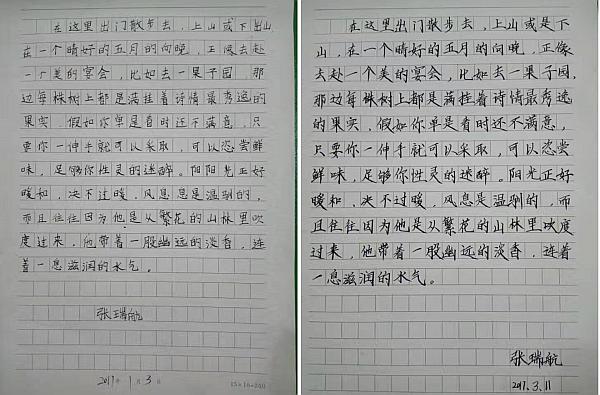 在这里出门散步去，上山或下出山
在一个晴好的五月的向晚，正像去赴
一个美的宴会，比如去一果子园，那
边每株树上都是满挂着诗情最秀逸的
果实，假如你单是看时还不满意，只
要你一伸手就可以采取，可以恣尝鲜
味，足够你性灵的迷醉。阳阳光正好
暖和，决不过暖，风息是温驯的，
而且往往因为他是从繁花的山林里吹
度过来，他带着一股幽远的淡香，连
着一息滋润的水气。
张瑞航
2017年1月3日
15×16=240
在这里出门散步去，上山或是下
山，在一个晴好的五月的向晚，正像
去赴一个美的宴会，比如去一果子园，
那边每株树上都是满挂着诗情最秀逸
的果实，假如你单是看时还不满意，
只要你一伸手就可以采取，可以恣尝
鲜味，足够你性灵的迷醉。阳光正好
暖和，决不过暖，风息是温驯的，而
且往往因为他是从繁花的山林里吹度
过来，他带着一股幽远的淡香，连着
一息滋润的水气。
张瑞航
2017.3.11